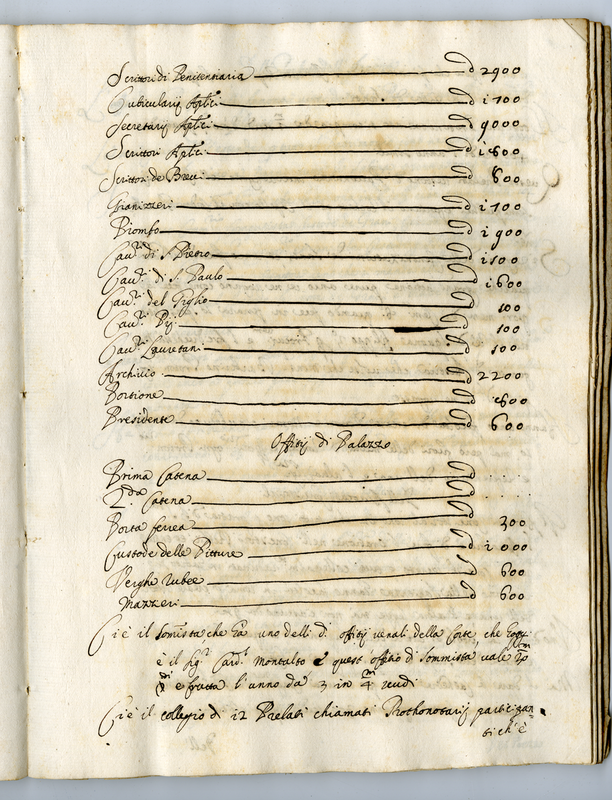 Scrittori di Penitentiaria 2900
Cubicularij Aplici 1700
Secretarij Aplici 9000
Scrittori Aplici 1800
Scrittori de Brevi 800
Gianizzeri 1700
Piombo 1900
Cavri di S. Pietro 1500
Cavri di S. Paulo 1600
Cavri del Giglio 100
Cavri Pij 100
Cavri Lauretani 500
Archivio 2200
Portione 800
Presidente 600
Offitij di Palazzo
Prima Catena ....
2da Catena ....
Porta ferrea 300
Custode delle Pitture 1000
Verghe rubee 600
Mazzeri 600
Ci è il Somista che ha uno delli di offitij venali della Corte, che hoggi
è il Sigr Card. Montalto e quest' offitio di Sommista vale
e frutta l'anno da 3 in 4 scudi
Ci è il collegio di 12 Prelati chiamati Prothonotarij partecipan
ti ch'è